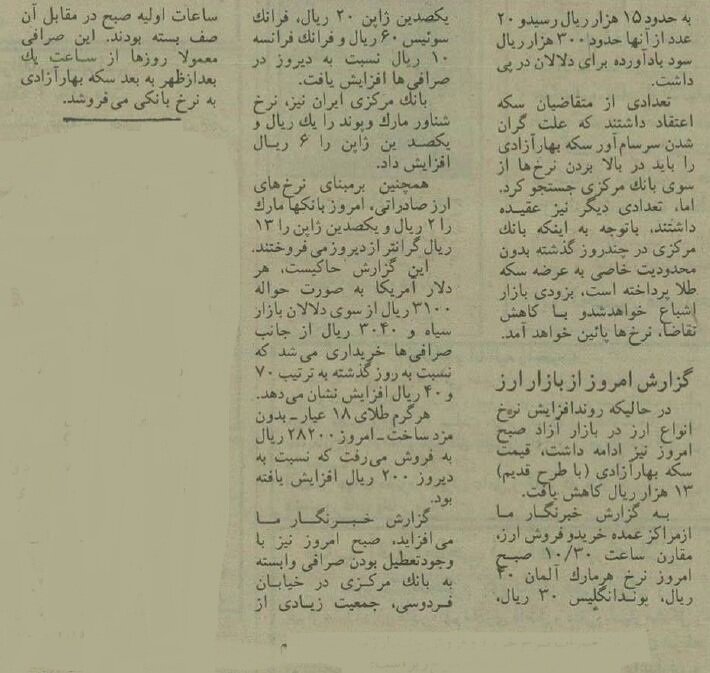 به حدود ۱۵ هزار ریال رسیدو ۲۰
عدد از آنها حدود ۳۰۰ هزار ریال
سود بادآورده برای دلالان در پی
داشت.
تعدادی از متقاضیان سکه
اعتقاد داشتند که علت گران
شدن سرسام‌آور سکه بهارآزادی
را باید در بالا بردن نرخ‌ها از
سوی بانك مرکزی جستجو کرد.
اما، تعدادی دیگر نیز عقیده
داشتند، باتوجه به اینکه بانك
مرکزی در چندروز گذشته بدون
محدودیت خاصی به عرضه سکه
طلا پرداخته است، بزودی بازار
اشباع خواهدشدو بـا کاهش
تقاضا، نرخ‌ها پائین خواهد آمد.
گزارش امروز از بازار ارز
در حالیکه روندافزایش نرخ
انواع ارز در بازار آزاد صبح
امروز نیز ادامه داشت، قیمت
سکه بهارآزادی (با طرح قدیم)
۱۳ هزار ریال کاهش یافت.
بـه گزارش خبرنگار مـا
ازمراکز عمده خریدو فروش ارز،
مقارن ساعت ۱۰/۳۰ صبـح
امروز نرخ هرمارك آلمان ۴۰
ریال، پوندانگلیس ۳۰ ریال،
یکصدین ژاپن ۲۰ ریال، فرانك
سوئیس ۶۰ ریال و فرانك فرانسه
۱۰ ریال نسبت به دیروز در
صرافی‌ها افزایش یافت.
بانك مرکزی ایران نیز، نرخ
شناور مارك وپوند را یك ریال و
یکصـد ین ژاپن را ۶ ریـال
افزایش داد.
همچنین برمبنای نرخ‌های
ارز صادراتی، امروز بانکها مارك
را ۲ ریال و یکصدین ژاپن را ۱۳
ریال گرانتر از دیروز می‌فروختند.
این گزارش حاکیست، هر
دلار آمریکا به صورت حواله
۳۱۰۰ ریال از سوی دلالان بازار
سیاه و ۳۰۴۰ ریال از جانب
صرافی‌ها خریداری می‌شد که
نسبت به روز گذشته به ترتیب ۷۰
و ۴۰ ریال افزایش نشان می‌دهد.
هرگرم طلای ۱۸ عیار ـ بدون
مزد ساخت ـ امروز ۲۸۲۰۰ ریال
به فروش می‌رفت که نسبت به
دیروز ۲۰۰ ریال افزایش یافته
بود.
گزارش خبـرنگـار مـا
می‌افزاید، صبح امروز نیز با
وجودتعطیل بودن صرافی وابسته
به بانك مرکزی در خیابان
فـردوسی، جمعیت زیادی از
ساعات اولیه صبح در مقابل آن
صف بسته بودند. این صرافی
معمولا روزها از سـاعت یك
بعدازظهر به بعد سکه بهارآزادی
به نرخ بانکی می‌فروشد.